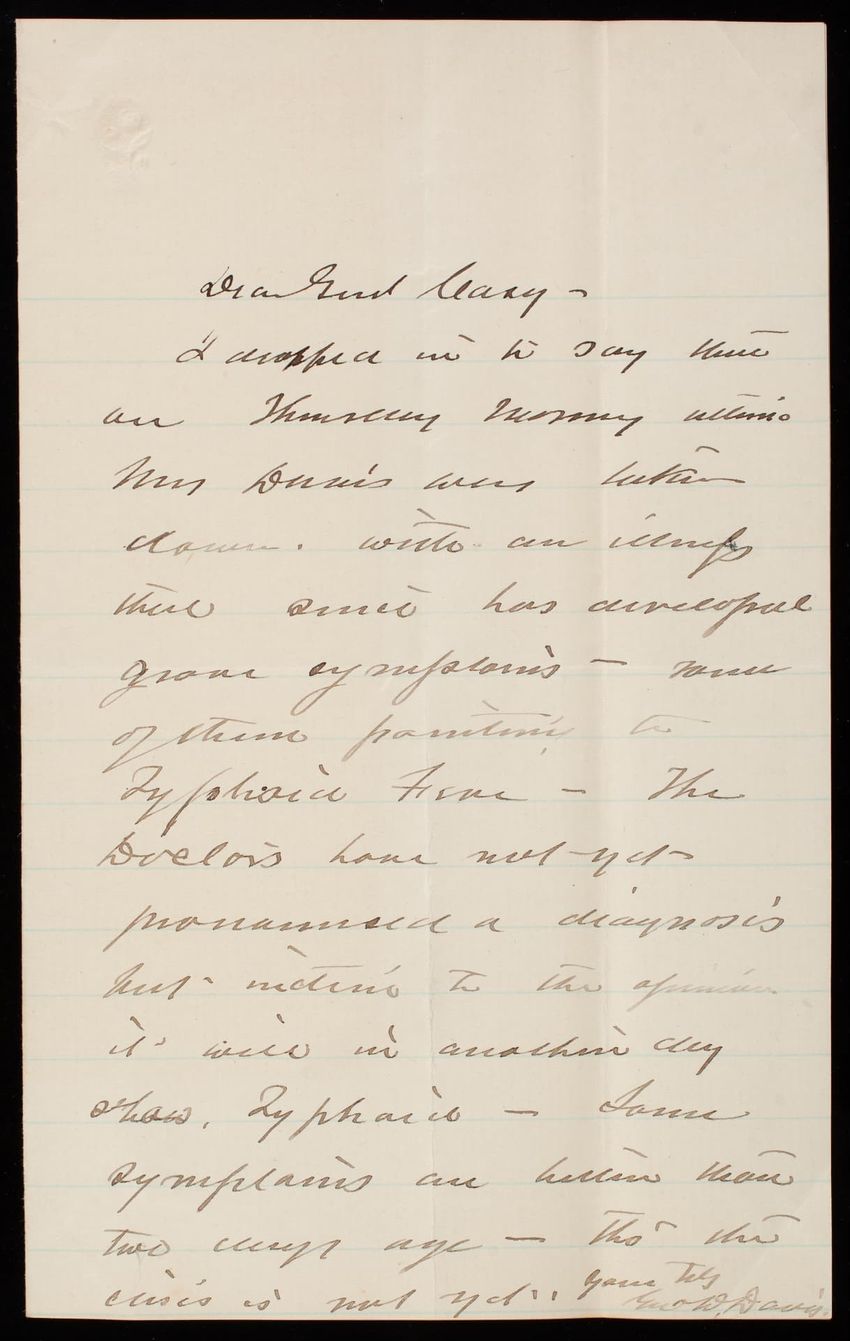 Dear Genl Casey -
I dropped in to say that
on Thursday Morning ultimo
Mrs Davis was taken
down. with an illness
that since has developed
grave symptoms - some
of them pointing to
Typhoid Fever - The
Doctors have not yet
pronounced a diagnosis
but incline to the opinion
it will in another day
show, Typhoid - Some
symptoms are better than
two days ago - tho' the
crisis is not yet.
Yours
Geo W. Davis.